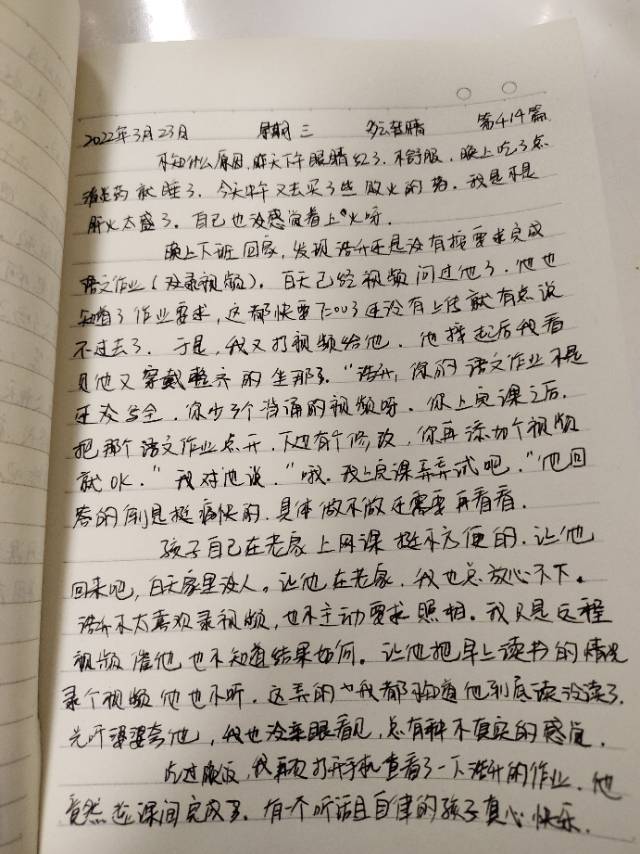 2022年3月23日 星期三 多云转晴 第414篇
不知什么原因,昨天下午眼睛红了,不舒服,晚上吃了点
药就睡了,今天中午又去买了些败火的药。我是不是
肝火太盛了,自己也没感觉着上火呀。
晚上下班回家,发现浩升还是没有按要求完成
语文作业(没录视频)。白天已经视频问过他了,他也
知道了作业要求,这都快要7:00了还没有上传就有点说
不过去了。于是,我又打视频给他,他接起后我看
见他又穿戴整齐的坐那了。“浩升,你的语文作业不是
还欠完全,你少了个背诵的视频呀,你上完课之后,
把那个语文作业点开,下边有个修改,你再添加个视频
就OK。”我对他说。“哦,我上完课弄弄试吧。”他回
答的倒是挺痛快的,具体做不做还需要再看看。
孩子自己在老家上网课挺不方便的,让他
回来吧,白天家里没人。让他在老家,我也总放心不下。
浩升不太喜欢录视频,也不主动要求照相。我只是远程
视频催他也不知道结果如何。让他把早上读书的情况
录个视频他也不听,这弄的我都不知道他到底读没读了,
光听婆婆夸他,我也没亲眼看见,总有种不真实的感觉。
吃过晚饭,我再次打开手机查看了一下浩升的作业,他
竟然在课间完成了。有一个听话且自律的孩子真心快乐。